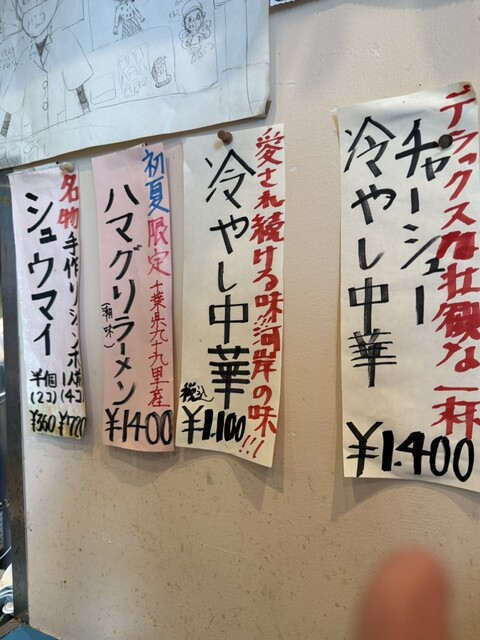 デラックス
な一杯
チャーシュー
冷やし中華
¥1.400
愛され続ける味河岸の味!!!
冷やし中華
税込
¥1.100
初夏限定
千葉県九十九里産
ハマグリラーメン
(潮味)
¥1400
名物手作りジャンボ
シュウマイ
1人前
(4コ)
¥720
半個
(2コ)
¥360